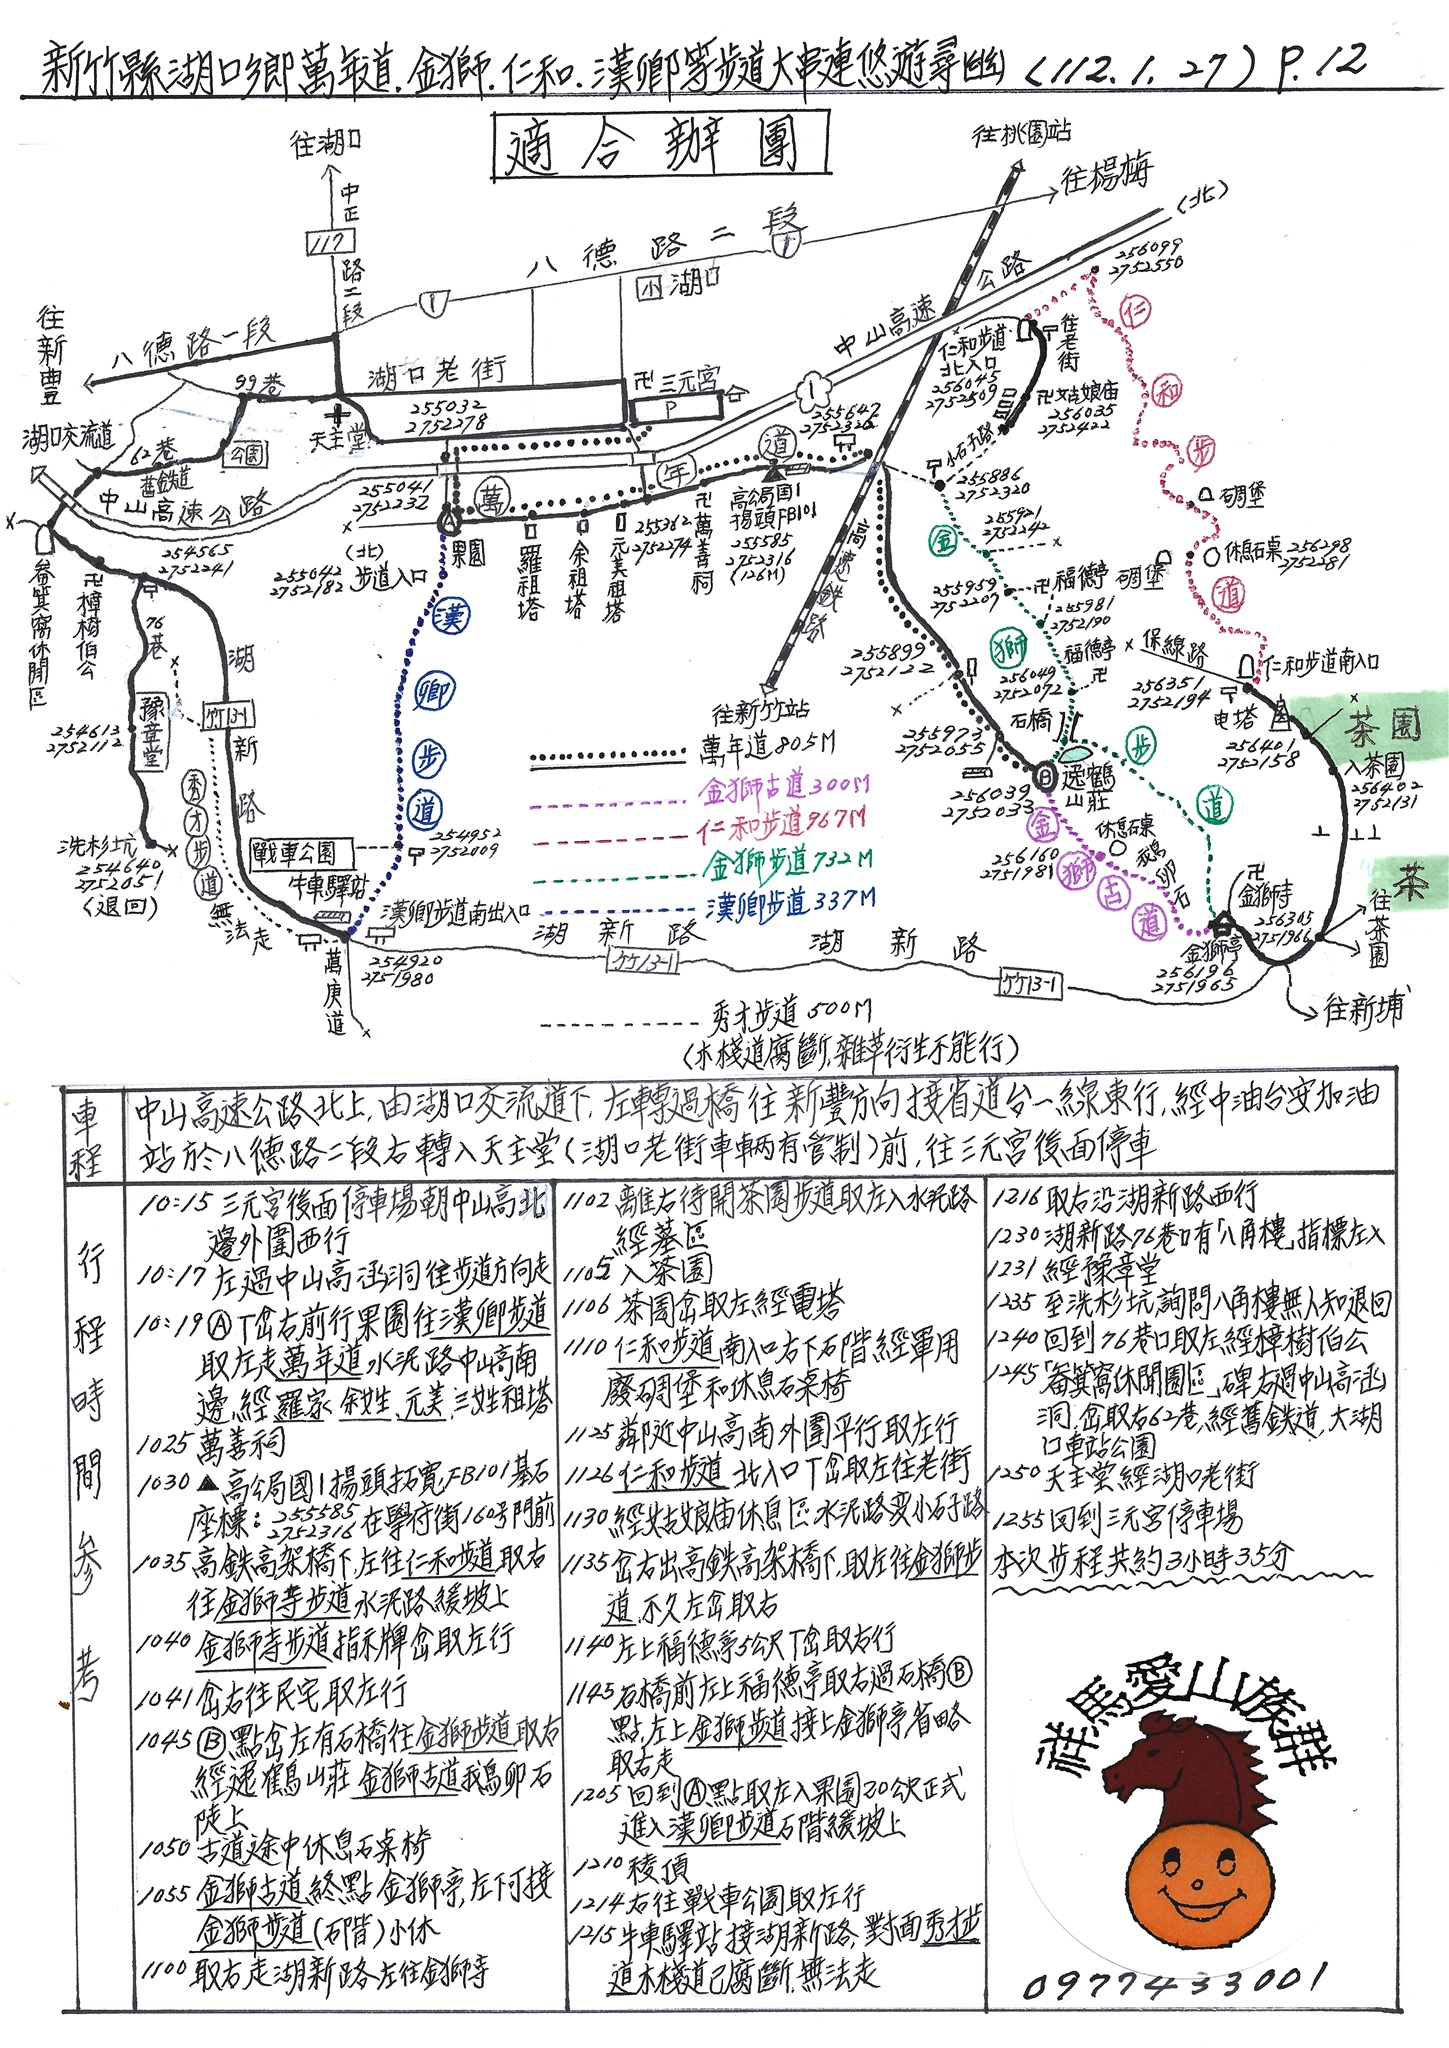 新竹縣湖口鄉萬年道.金獅.仁和.漢卿等步道大串連悠遊尋幽 (112.1.27) P.12
適合辦團
往湖口
往桃園站
往楊梅
(北)
中正路二段
117
八德路二段
1
1
小湖口
公路
中山高速
1
256099
2752550
仁和步道
往新豐
八德路一段
99巷
湖口老街
卍三元宮
P
255032
2752278
天主堂
湖口交流道
62巷
舊鐵道
公園
中山高速公路
仁和步道
北入口
256045
2752509
往老街
卍姑娘庙
256035
2752422
小石子路
255886
2752320
255921
2752242
金獅步道
255041
2752232
萬年道
(北)
255042
2752182
步道入口
果園
A
羅祖塔
余祖塔
元美祖塔
255362
2752274
卍萬善祠
高公局國1
揚頭FB101
255585
2752316
(126M)
高速鐵路
碉堡
碉堡
休息石桌
256298
2752281
255959
2752207
卍福德亭
255981
2752190
福德亭
卍
256049
2752072
石橋
保線路
256351
2752194
仁和步道南入口
电塔
茶園
256401
2752158
入茶園
256402
2752131
茶
254565
2752241
畚箕窩休閒區
卍樟樹伯公
76巷
豫章堂
254613
2752112
洗杉坑
254640
2752051
(退回)
湖新路
竹13-1
秀才步道
無法走
漢卿步道
戰車公園
254952
2752009
牛車驛站
漢卿步道南出入口
254920
2751980
萬庚道
255899
2752122
往新竹站
255973
2752055
256039
2752033
B
逸鶴
山莊
金獅古道
休息石桌
鵝卵石
256160
2751981
卍
金獅寺
256305
2751966
金獅亭
256196
2751965
往茶園
往新埔
湖新路
竹13-1
湖新路
竹13-1
萬年道805M
金獅古道300M
仁和步道967M
金獅步道732M
漢卿步道337M
秀才步道500M
(木棧道腐斷,雜草衍生不能行)
車程
中山高速公路北上,由湖口交流道下,左轉過橋往新豐方向接省道台一線東行,經中油台安加油
站於八德路二段右轉入天主堂(湖口老街車輛有管制)前,往三元宮後面停車
行程時間參考
10:15 三元宮後面停車場朝中山高北
邊外圍西行
10:17 左過中山高涵洞往步道方向走
10:19 Ⓐ丁岔右前行果園往漢卿步道
取左走萬年道水泥路中山高南
邊,經羅家、余姓、元美、三姓祖塔
1025 萬善祠
1030 ▲高公局國1揚頭拓寬FB101基石
座標: 255585
2752316 在學府街160号門前
1035 高鉄高架橋下,左往仁和步道取右
往金獅寺步道水泥路緩坡上
1040 金獅寺步道指示牌岔取左行
1041 岔右往民宅取左行
1045 Ⓑ點岔左有石橋往金獅步道取右
經逸鶴山莊金獅古道鵝卵石
陡上
1050 古道途中休息石桌椅
1055 金獅古道終點金獅亭,左下可接
金獅步道(石階)小休
1100 取右走湖新路左往金獅寺
1102 離右待開茶園步道取左入水泥路
經墓區
1105 入茶園
1106 茶園岔取左經電塔
1110 仁和步道南入口右下石階經軍用
廢碉堡和休息石桌椅
1125 鄰近中山高南外圍平行取左行
1126 仁和步道北入口丁岔取左往老街
1130 經姑娘庙休息區水泥路变小石子路
1135 岔右出高鉄高架橋下,取左往金獅步
道,不久左岔取右
1140 左上福德亭5公尺丁岔取右行
1145 石橋前左上福德亭取右過石橋Ⓑ
點,左上金獅步道接上金獅亭省略
取右走
1205 回到Ⓐ點取左入果園20公尺正式
進入漢卿步道石階緩坡上
1210 稜頂
1214 右往戰車公園取左行
1215 牛車驛站接湖新路,對面秀才步
道木棧道已腐斷,無法走
1216 取右沿湖新路西行
1230 湖新路76巷口有「八角樓」指標左入
1231 經豫章堂
1235 至洗杉坑詢問八角樓無人知退回
1240 回到76巷口取左經樟樹伯公
1245 「畚箕窩休閒園區」碑右過中山高涵
洞,岔取右62巷,經舊鉄道,大湖
口車站公園
1250 天主堂經湖口老街
1255 回到三元宮停車場
本次步程共約3小時35分
祥馬愛山族群
0977433001